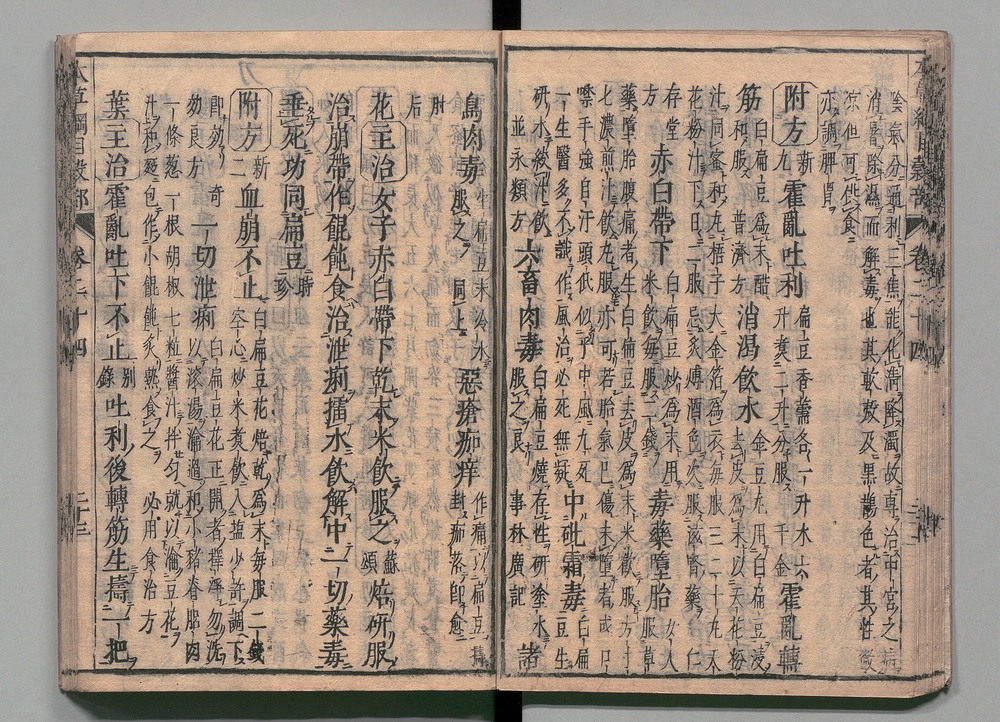 陰氣分通利三焦能化清降濁故專治中宮之病
消暑除濕而解毒也其軟嫩及黑鵲色者其性微
凉但可供食
亦調脾胃
附方 新九 霍亂吐利 扁豆香薷各一升水六升煮二升分服 千金 霍亂轉
筋 白扁豆爲末醋和服 普濟方 消渴飲水 金豆丸用白扁豆浸去皮爲末以天花粉
汁同蜜和丸梧子大金箔爲衣每服二三十丸天
花粉汁下日二服忌炙煿酒色次服滋腎藥
存堂方 赤白帶下 白扁豆炒爲末用米飲每服二錢 毒藥墮胎 女人服草
藥墮胎腹痛者生白扁豆去皮爲末米飲服方
七濃煎汁飲丸服亦可若胎氣已傷未墮者或口
噤手強自汗頭低似乎中風九死
一生醫多不識作風治必死無疑 中砒霜毒 白扁豆生
研水絞汁飲 並永類方 六畜肉毒 白扁豆燒存性研水服之良 事林廣記 諸
鳥肉毒 生扁豆末冷水服之 同上 惡瘡痂痒作痛 以扁豆擣封痂落卽愈 肘后
花 主治 女子赤白帶下乾末米飲服之 蘇頌 焙研服
治崩帶作餛飩食治泄痢擂水飲解中一切藥毒
垂死功同扁豆 時珍
附方 新二 血崩不止 白扁豆花焙乾爲末每服二錢空心炒米煮飲入塩少許調下
卽効 奇効良方 一切泄痢 白扁豆花正開者擇淨勿洗以滚湯瀹過和小豬脊𦙶肉
一條葱一根胡椒七粒醬汁拌匀就以瀹豆花
汁和麪包作小餛飩炙熟食之 必用食治方
葉 主治 霍亂吐下不止 別錄 吐利後轉筋生擣一把
本草綱目穀部 卷二十四 二十三